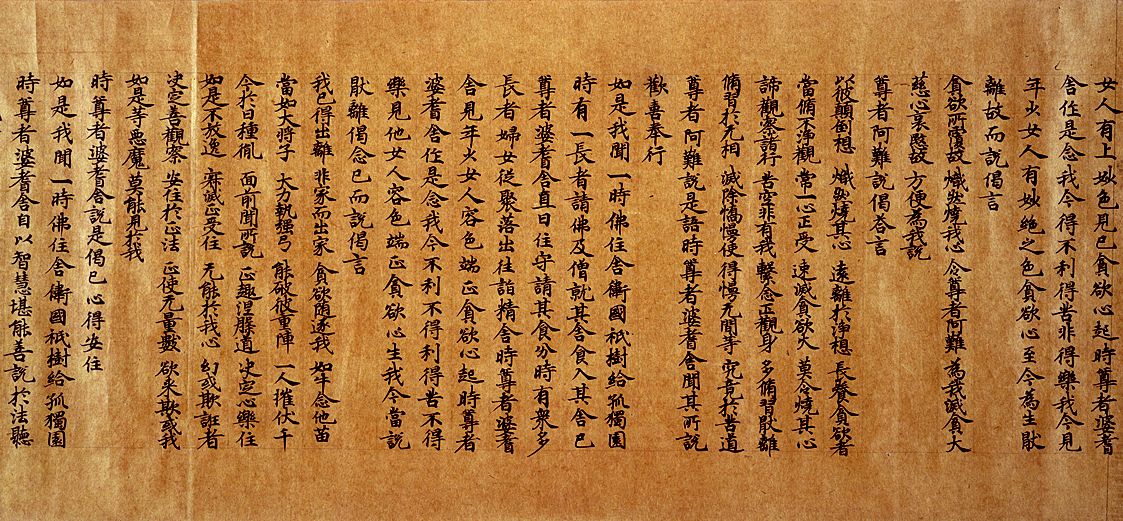 女人有上妙色見已貪欲心起時尊者婆耆
舍作是念我今得不利得苦非得樂我今見
年少女人有妙絕之色貪欲心至今為生猒
離故而說偈言
貪欲所覆故 熾然燒我心 今尊者阿難 為我滅貪火
慈心哀愍故 方便為我說
尊者阿難說偈答言
以彼顛倒想 熾然燒其心 遠離於淨想 長養貪欲者
當脩不淨觀 常一心正受 速滅貪欲火 莫令燒其心
諦觀察諸行 苦空非有我 繫念正觀身 多脩習猒離
脩習於无相 滅除憍慢使 得慢无間等 究竟於苦道
尊者阿難說是語時尊者婆耆舍聞其所說
歡喜奉行
如是我聞一時佛住舍衛國祇樹給孤獨園
時有一長者請佛及僧就其舍食入其舍已
尊者婆耆舍直日住守請其食分時有眾多
長者婦女從聚落出往詣精舍時尊者婆耆
舍見年少女人容色端正貪欲心起時尊者
婆耆舍作是念我今不利不得利得苦不得
樂見他女人容色端正貪欲心生我今當說
猒離偈念已而說偈言
我已得出離 非家而出家 貪欲隨逐我 如牛念他苗
當如大將子 大力執強弓 能破彼重陣 一人摧伏千
今於日種胤 面前聞所說 正趣涅槃道 決定心樂住
如是不放逸 寂滅正受住 无能於我心 幻惑欺誑者
決定善觀察 安住於正法 正使无量數 欲來欺惑我
如是等惡魔 莫能見於我
時尊者婆耆舍說是偈已心得安住
如是我聞一時佛住舍衛國祇樹給孤獨園
時尊者婆耆舍自以智慧堪能善說於法聰